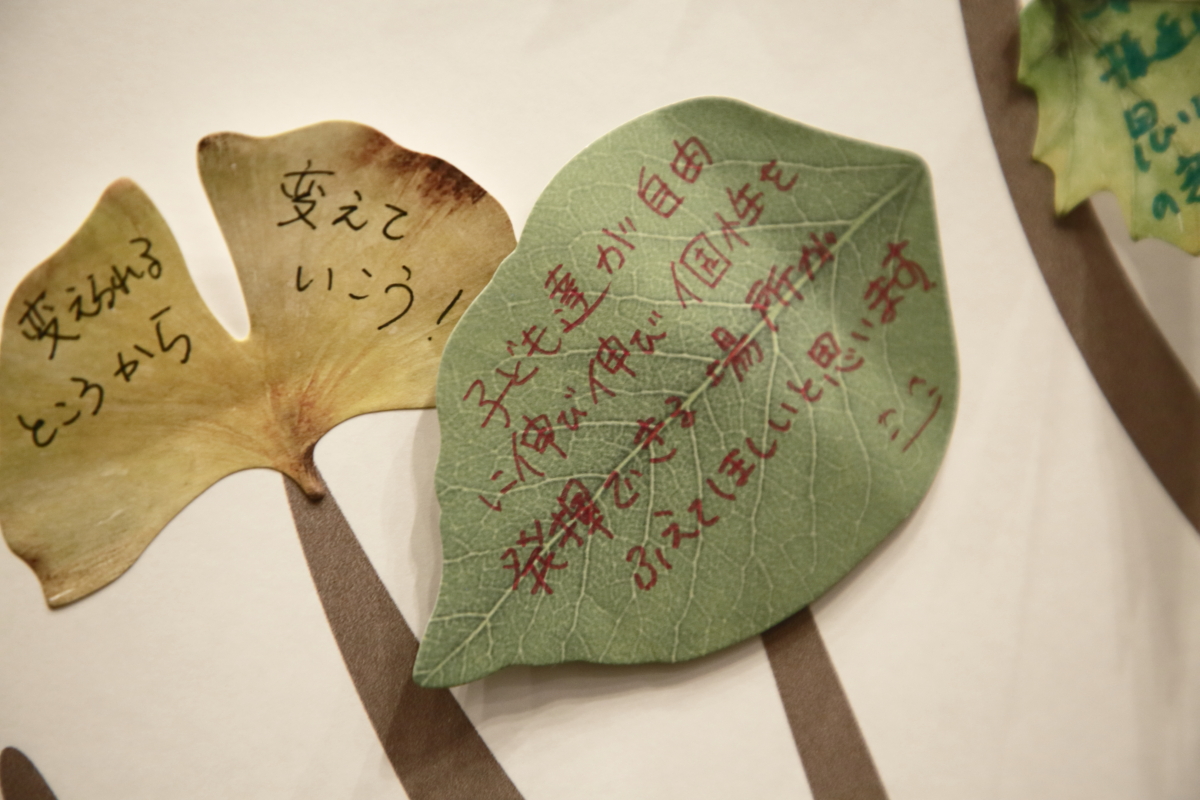 変えられる
ところから
変えて
いこう！
子ども達が自由
に伸び伸び個性を
発揮できる場所が
ふえてほしいと思います
思い
の